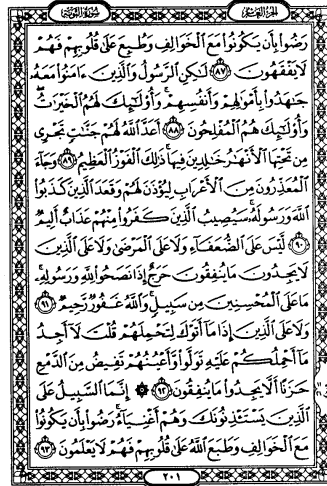 الجزء العاشر
سورة التوبة
رَضُوا۟ بِأَن يَكُونُوا۟ مَعَ ٱلْخَوَالِفِ وَطُبِعَ عَلَىٰ قُلُوبِهِمْ فَهُمْ
لَا يَفْقَهُونَ ٨٧ لَٰكِنِ ٱلرَّسُولُ وَٱلَّذِينَ ءَامَنُوا۟ مَعَهُۥ
جَٰهَدُوا۟ بِأَمْوَٰلِهِمْ وَأَنفُسِهِمْ ۚ وَأُو۟لَٰٓئِكَ لَهُمُ ٱلْخَيْرَٰتُ ۖ
وَأُو۟لَٰٓئِكَ هُمُ ٱلْمُفْلِحُونَ ٨٨ أَعَدَّ ٱللَّهُ لَهُمْ جَنَّٰتٍ تَجْرِى
مِن تَحْتِهَا ٱلْأَنْهَٰرُ خَٰلِدِينَ فِيهَا ۚ ذَٰلِكَ ٱلْفَوْزُ ٱلْعَظِيمُ ٨٩ وَجَآءَ
ٱلْمُعَذِّرُونَ مِنَ ٱلْأَعْرَابِ لِيُؤْذَنَ لَهُمْ وَقَعَدَ ٱلَّذِينَ كَذَبُوا۟
ٱللَّهَ وَرَسُولَهُۥ ۚ سَيُصِيبُ ٱلَّذِينَ كَفَرُوا۟ مِنْهُمْ عَذَابٌ أَلِيمٌ
٩٠ لَّيْسَ عَلَى ٱلضُّعَفَآءِ وَلَا عَلَى ٱلْمَرْضَىٰ وَلَا عَلَى ٱلَّذِينَ
لَا يَجِدُونَ مَا يُنفِقُونَ حَرَجٌ إِذَا نَصَحُوا۟ لِلَّهِ وَرَسُولِهِۦ ۚ
مَا عَلَى ٱلْمُحْسِنِينَ مِن سَبِيلٍ ۚ وَٱللَّهُ غَفُورٌ رَّحِيمٌ ٩١
وَلَا عَلَى ٱلَّذِينَ إِذَا مَآ أَتَوْكَ لِتَحْمِلَهُمْ قُلْتَ لَآ أَجِدُ
مَآ أَحْمِلُكُمْ عَلَيْهِ تَوَلَّوا۟ وَّأَعْيُنُهُمْ تَفِيضُ مِنَ ٱلدَّمْعِ
حَزَنًا أَلَّا يَجِدُوا۟ مَا يُنفِقُونَ ٩٢ ۞ إِنَّمَا ٱلسَّبِيلُ عَلَى
ٱلَّذِينَ يَسْتَـْٔذِنُونَكَ وَهُمْ أَغْنِيَآءُ ۚ رَضُوا۟ بِأَن يَكُونُوا۟
مَعَ ٱلْخَوَالِفِ وَطَبَعَ ٱللَّهُ عَلَىٰ قُلُوبِهِمْ فَهُمْ لَا يَعْلَمُونَ ٩٣
٢٠١